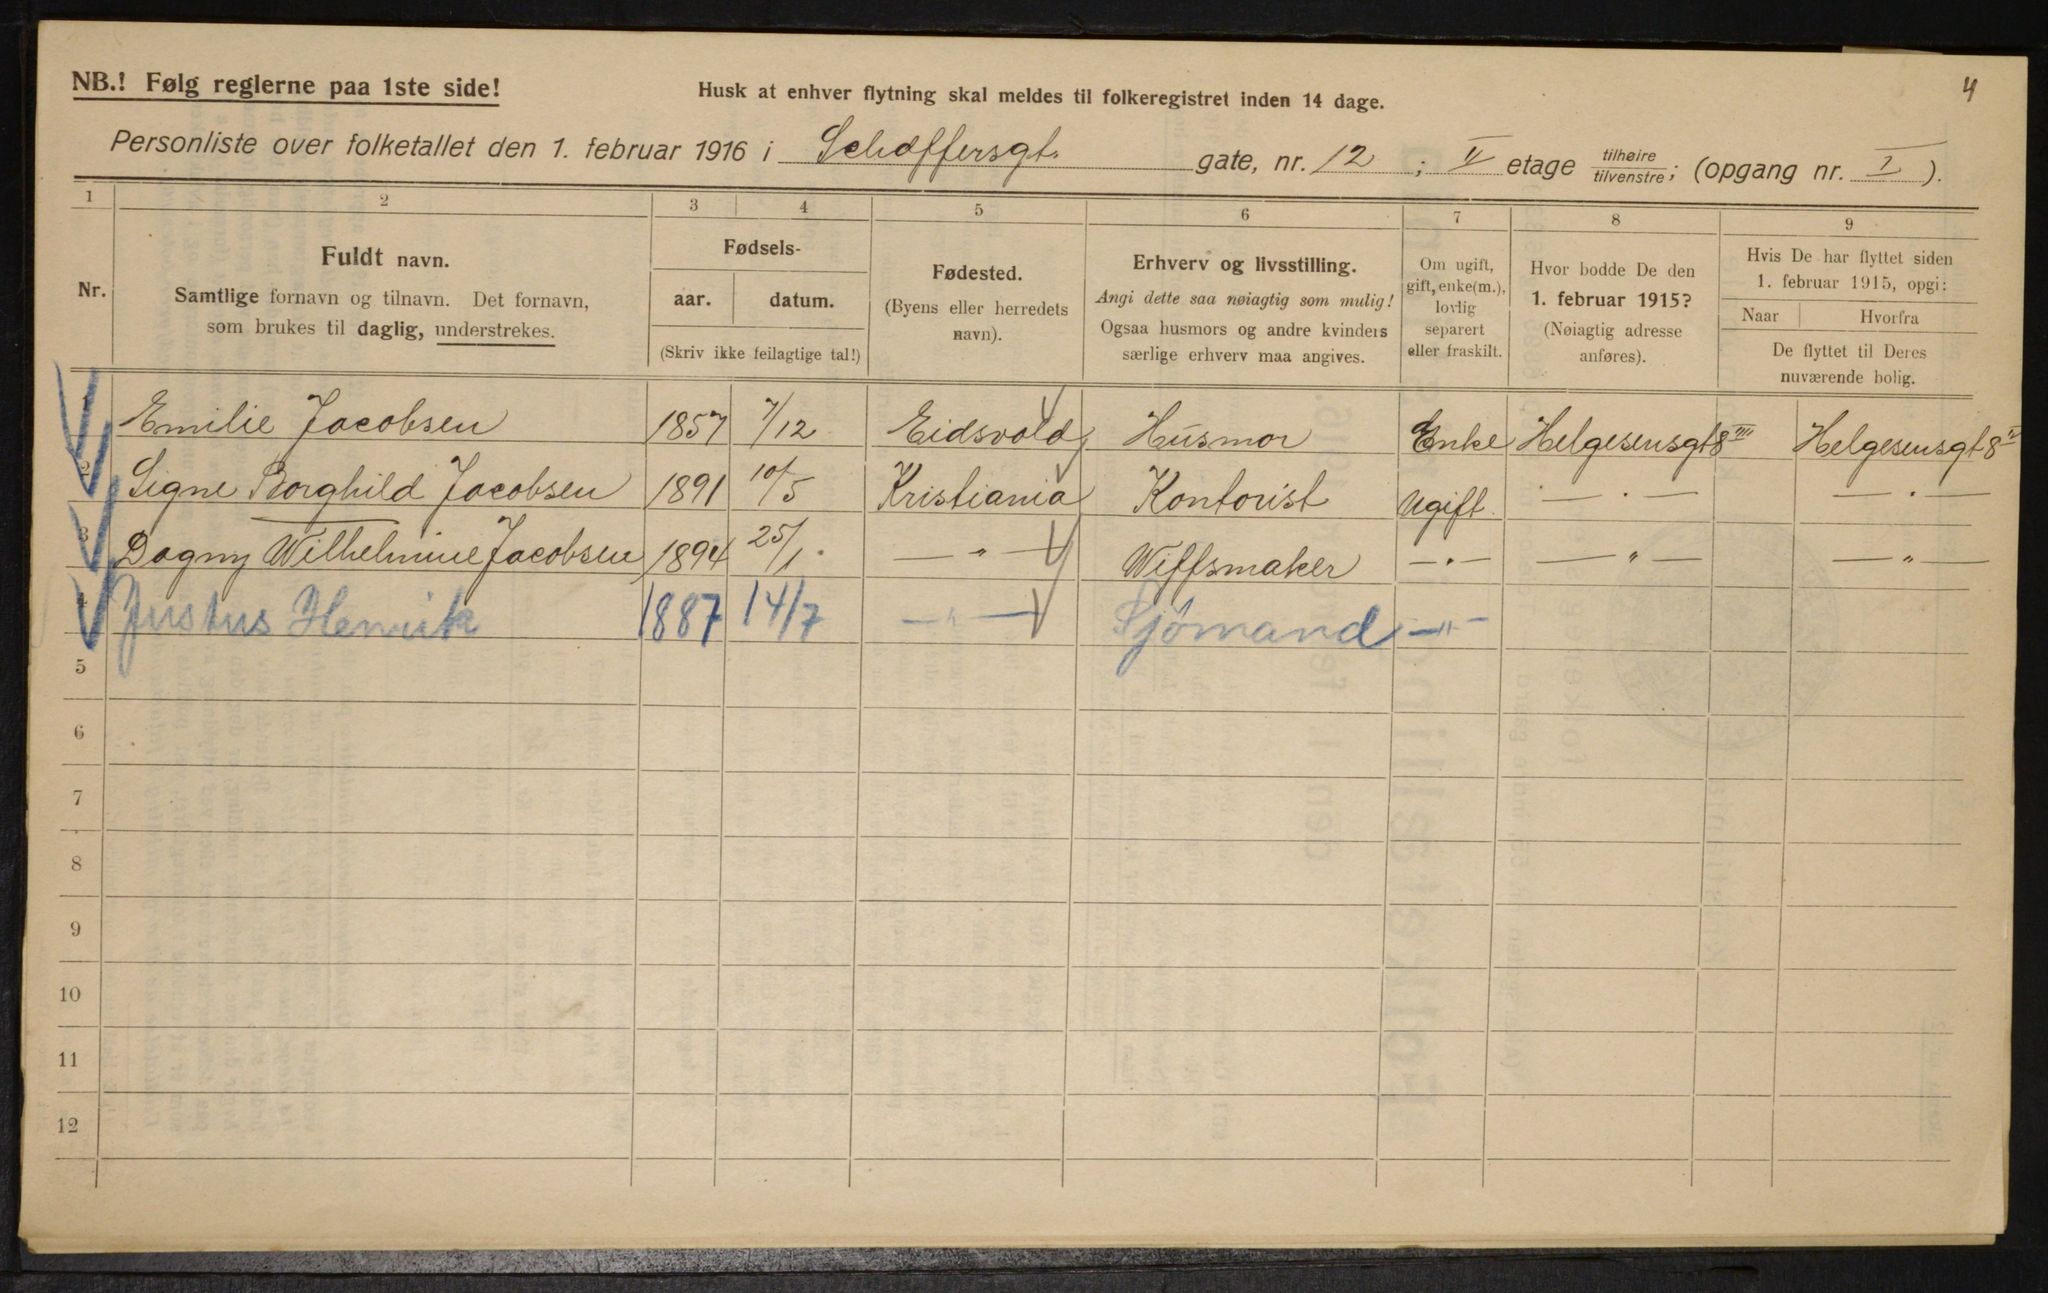 NB.! Følg reglerne paa 1ste side!
Husk at enhver flytning skal meldes til folkeregistret inden 14 dage.
4
Personliste over folketallet den 1. februar 1916 i Schæffersgt. gate, nr. 12 ; II etage tilhøire tilvenstre ; (opgang nr. I ).
1 2 3 4 5 6 7 8 9
Nr.
Fuldt navn.
Samtlige fornavn og tilnavn. Det fornavn,
som brukes til daglig, understrekes.
Fødsels-
aar. datum.
(Skriv ikke feilagtige tal!)
Fødested.
(Byens eller herredets
navn).
Erhverv og livsstilling.
Angi dette saa nøiagtig som mulig!
Ogsaa husmors og andre kvinders
særlige erhverv maa angives.
Om ugift,
gift, enke(m.),
lovlig
separert
eller fraskilt.
Hvor bodde De den
1. februar 1915?
(Nøiagtig adresse
anføres).
Hvis De har flyttet siden
1. februar 1915, opgi:
Naar Hvorfra
De flyttet til Deres
nuværende bolig.
1 Emilie Jacobsen 1857 7/12 Eidsvold Husmor Enke Helgesensgt 8 III Helgesensgt 8
2 Signe Borghild Jacobsen 1891 10/5 Kristiania Kontorist Ugift — " — — " —
3 Dagny Wilhelmine Jacobsen 1894 25/1 — " — Wiffsmaker — " — — " — — " —
4 Justus Henrik 1887 14/7 — " — Sjømand — " —
5
6
7
8
9
10
11
12